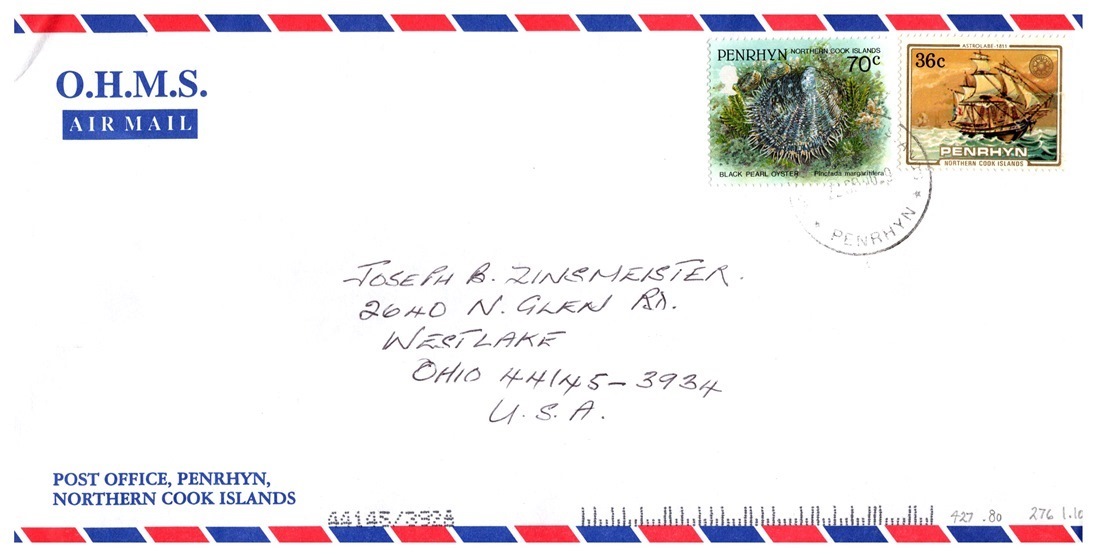 O.H.M.S.
AIR MAIL
PENRHYN NORTHERN COOK ISLANDS
70c
BLACK PEARL OYSTER Pinctada margaritifera
ASTROLABE-1811
36c
PENRHYN
NORTHERN COOK ISLANDS
PENRHYN
JOSEPH B. ZINSMEISTER.
2640 N. GLEN RD.
WESTLAKE
OHIO 44145-3934
U.S.A.
POST OFFICE, PENRHYN,
NORTHERN COOK ISLANDS
44145/3928
427 .80 276 1.10